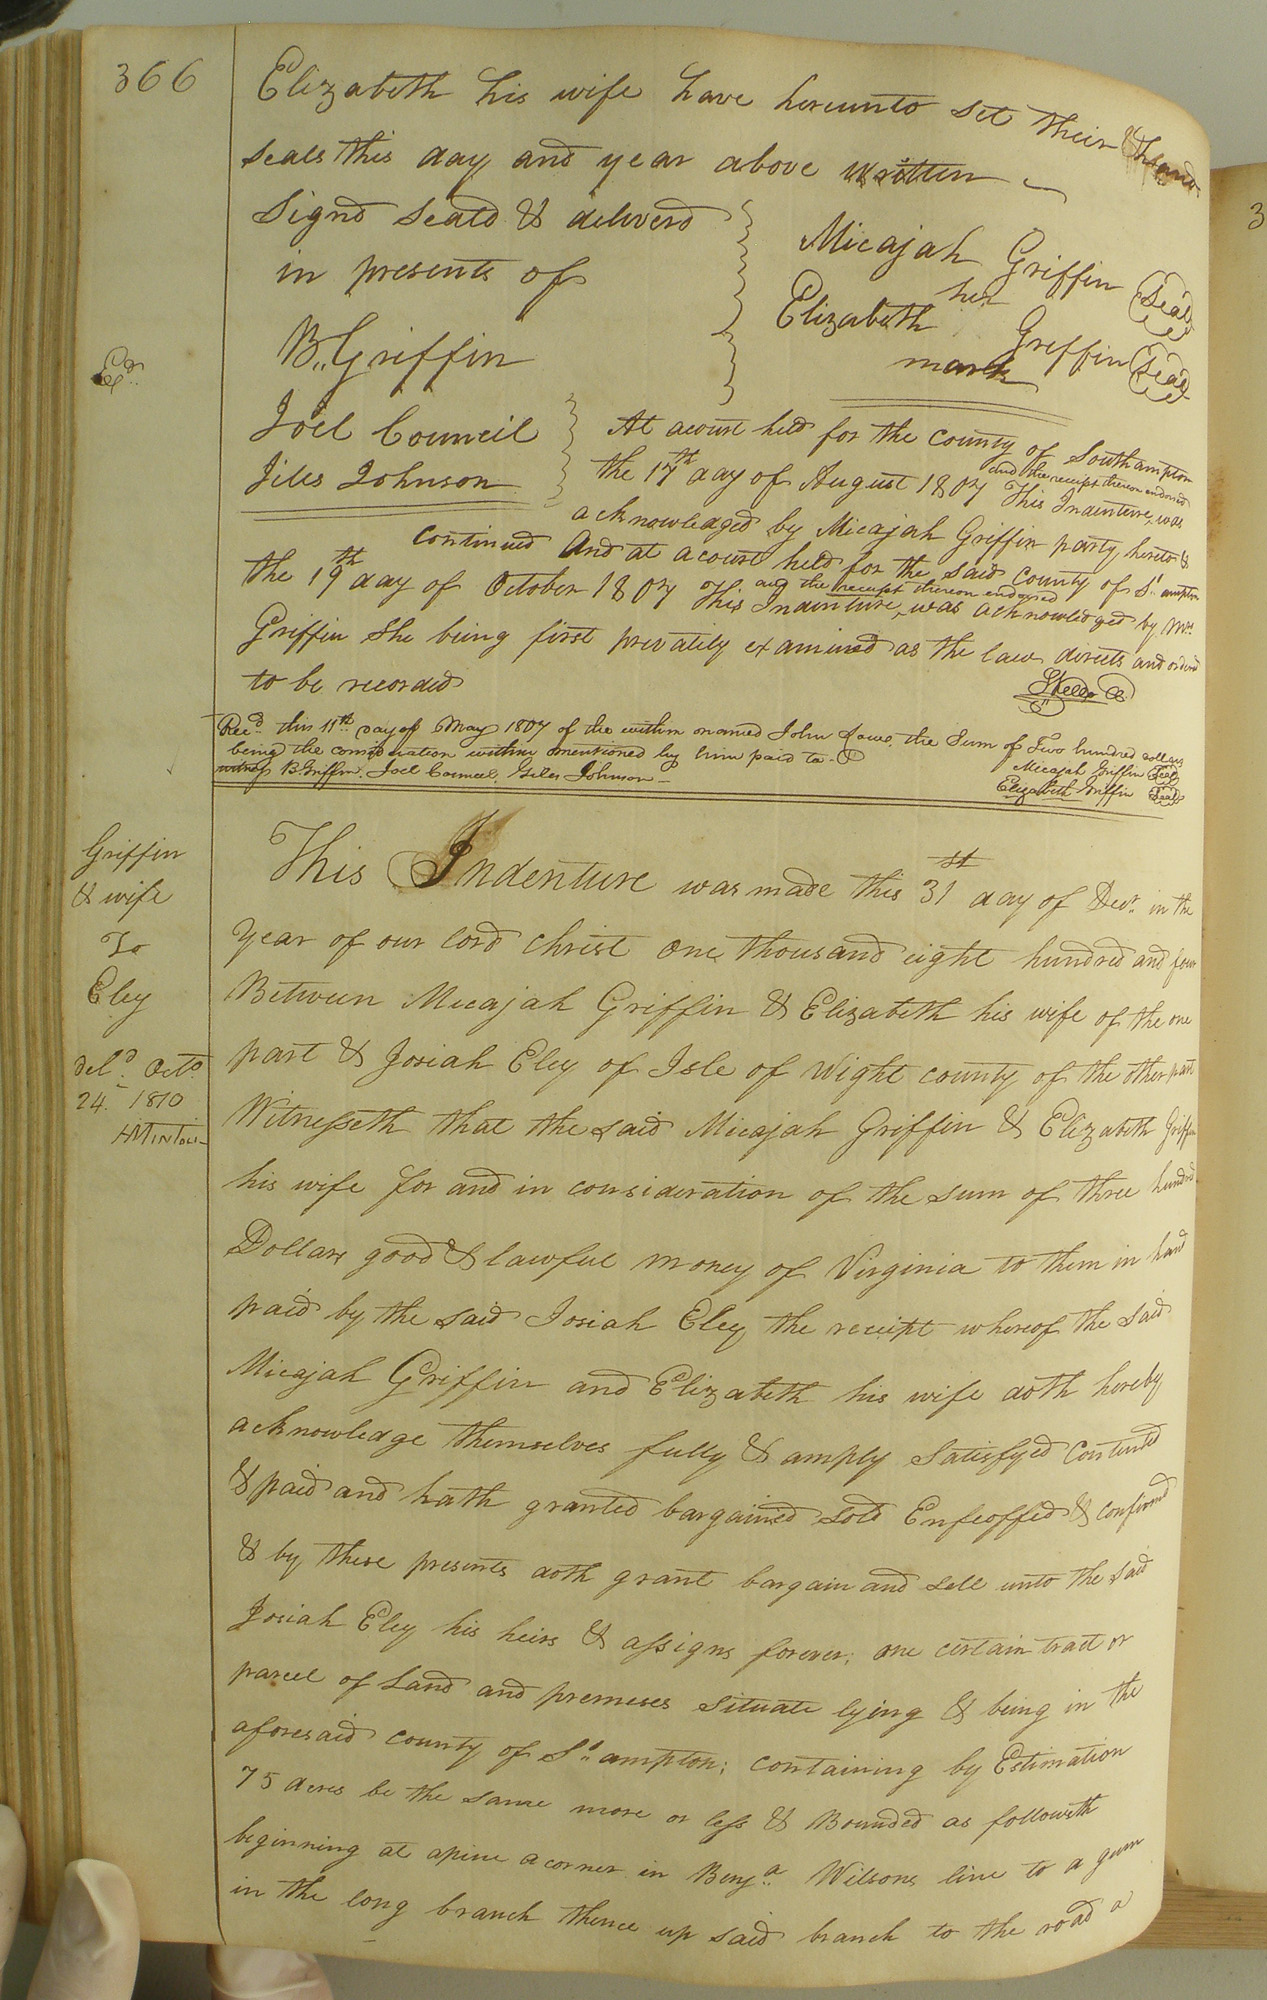 366
Elizabeth his wife have hereunto set their hands &
seals this day and year above written
Signd Seald & deliverd
in presents of
B. Griffin
Joel Council
Jiles Johnson
Micajah Griffin Seal
her
Elizabeth Griffin Seal
mark
Exd.
At acourt held for the county of Southampton
the 17th day of August 1807 This Indenture, and the receipt thereon endorsed was
acknowledged by Micajah Griffin party hereto &
continued And at acourt held for the said county of So. ampton
the 19th day of October 1807 This Indenture, and the receipt thereon endorsed was acknowledged by Mrs
Griffin She being first privately examined as the law directs and ordered
to be recorded
Recd. this 11th day of May 1807 of the within named John the Sum of Two hundred dollars
being the consideration within mentioned by him paid to
witness B Griffin. Joel Council. Giles Johnson
Micajah Griffin Seal
Elizabeth Griffin Seal
Griffin
& wife
To
Eley
Deld. Octo.
24. 1810
This Indenture was made this 31st day of Decr. in the
year of our lord christ one thousand eight hundred and four
Between Micajah Griffin & Elizabeth his wife of the one
part & Josiah Eley of Isle of Wight county of the other part
Witnesseth that the said Micajah Griffin & Elizabeth Griffin
his wife for and in consideration of the sum of three hundred
Dollars good & lawful money of Virginia to them in hand
paid by the said Josiah Eley the receipt whereof the said
Micajah Griffin and Elizabeth his wife doth hereby
acknowledge themselves fully & amply Satisfyed contented
& paid and hath granted bargained sold Enfeoffed & confirmed
& by these presents doth grant bargain and sell unto the said
Josiah Eley his heirs & assigns forever; one certain tract or
parcel of Land and premeses situate lying & being in the
aforesaid county of So. ampton; containing by Estimation
75 acres be the same more or less & Bounded as followeth
beginning at apine acorner in Benja. Wilsons line to a gum
in the long branch thence up said branch to the road a